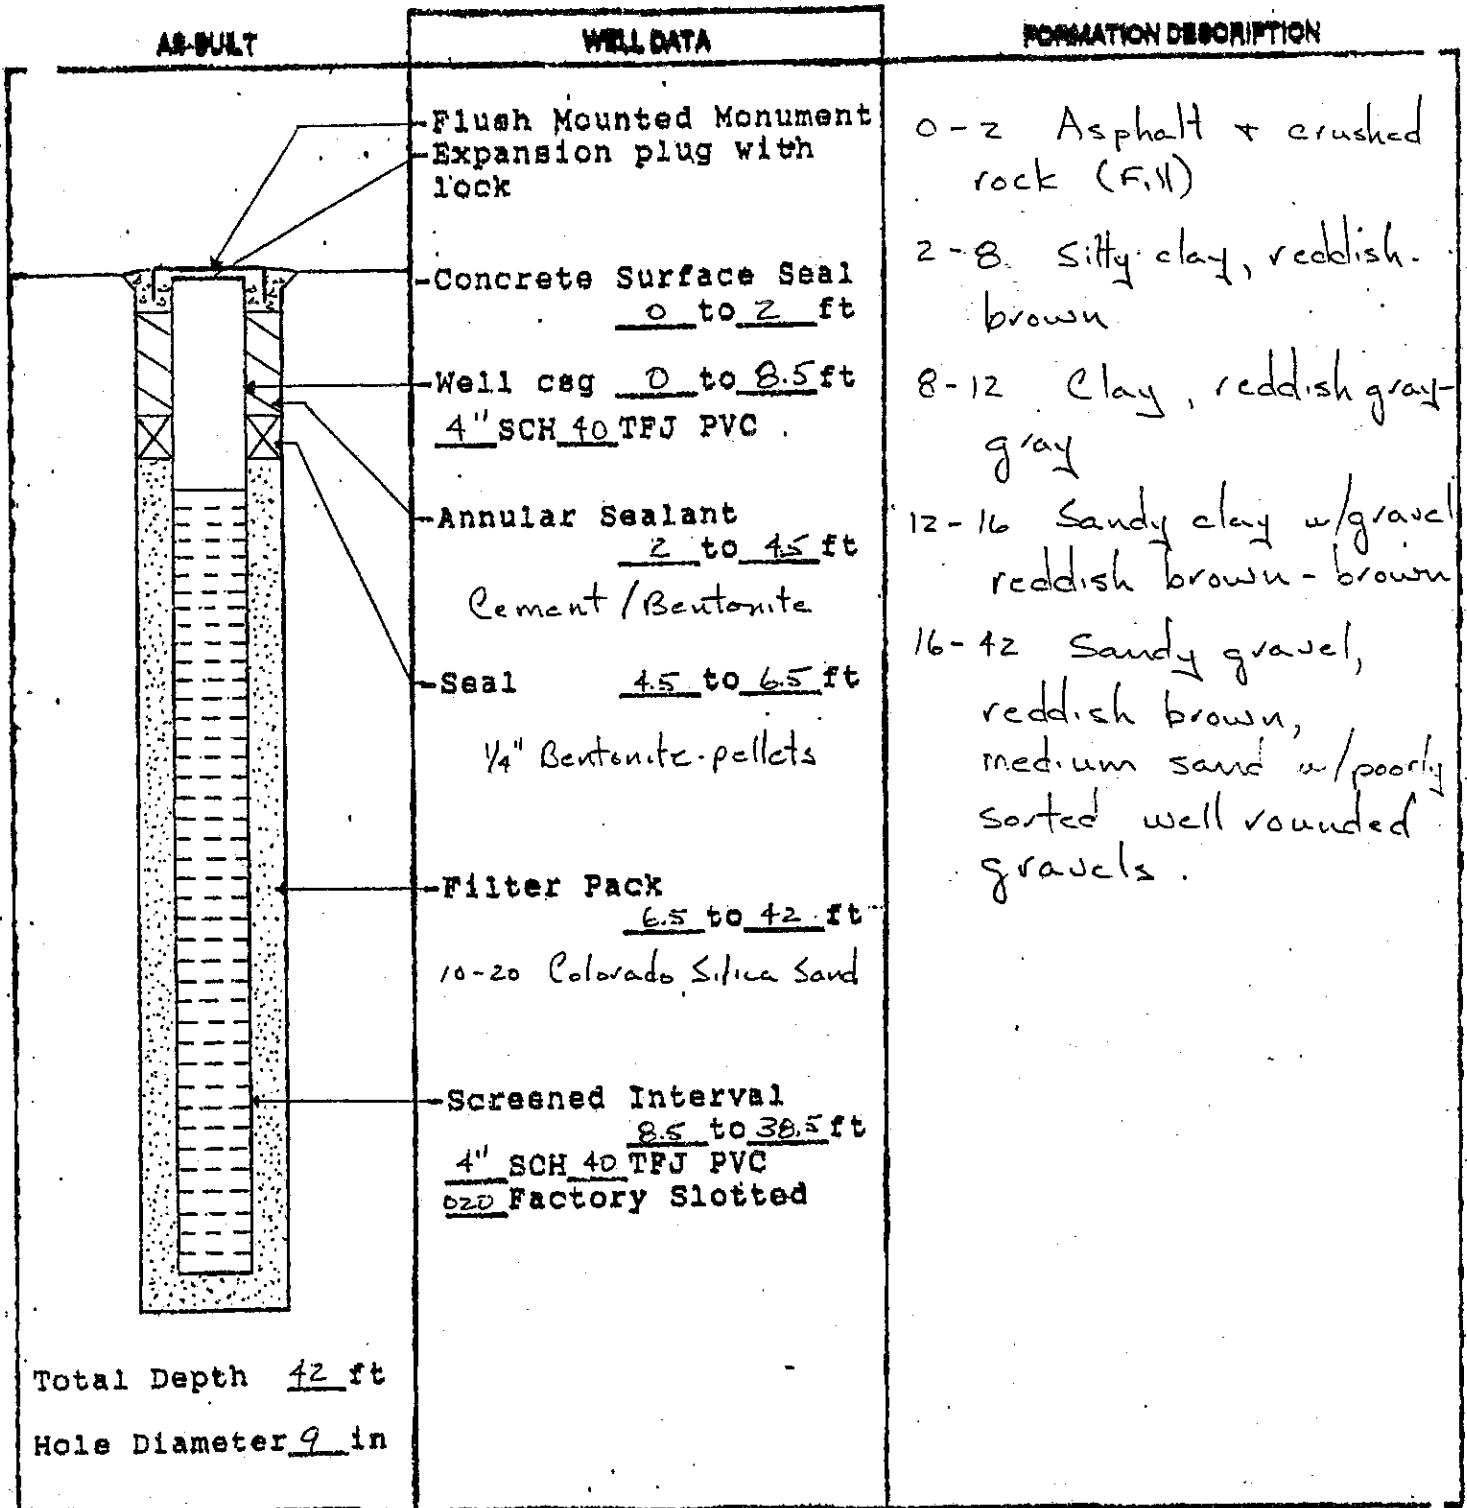 AS-BUILT
WELL DATA
FORMATION DESCRIPTION
Flush Mounted Monument
Expansion plug with
lock
Concrete Surface Seal
0 to 2 ft
Well csg 0 to 8.5 ft
4" SCH 40 TFJ PVC
Annular Sealant
2 to 4.5 ft
Cement / Bentonite
Seal 4.5 to 6.5 ft
1/4" Bentonite pellets
Filter Pack
6.5 to 42 ft
10-20 Colorado Silica Sand
Screened Interval
8.5 to 38.5 ft
4" SCH 40 TFJ PVC
020 Factory Slotted
0-2 Asphalt + crushed
rock (Fill)
2-8 Silty clay, reddish
brown
8-12 Clay, reddish gray-
gray
12-16 Sandy clay w/gravel
reddish brown - brown
16-42 Sandy gravel,
reddish brown,
medium sand w/poorly
sorted well rounded
gravels.
Total Depth 42 ft
Hole Diameter 9 in